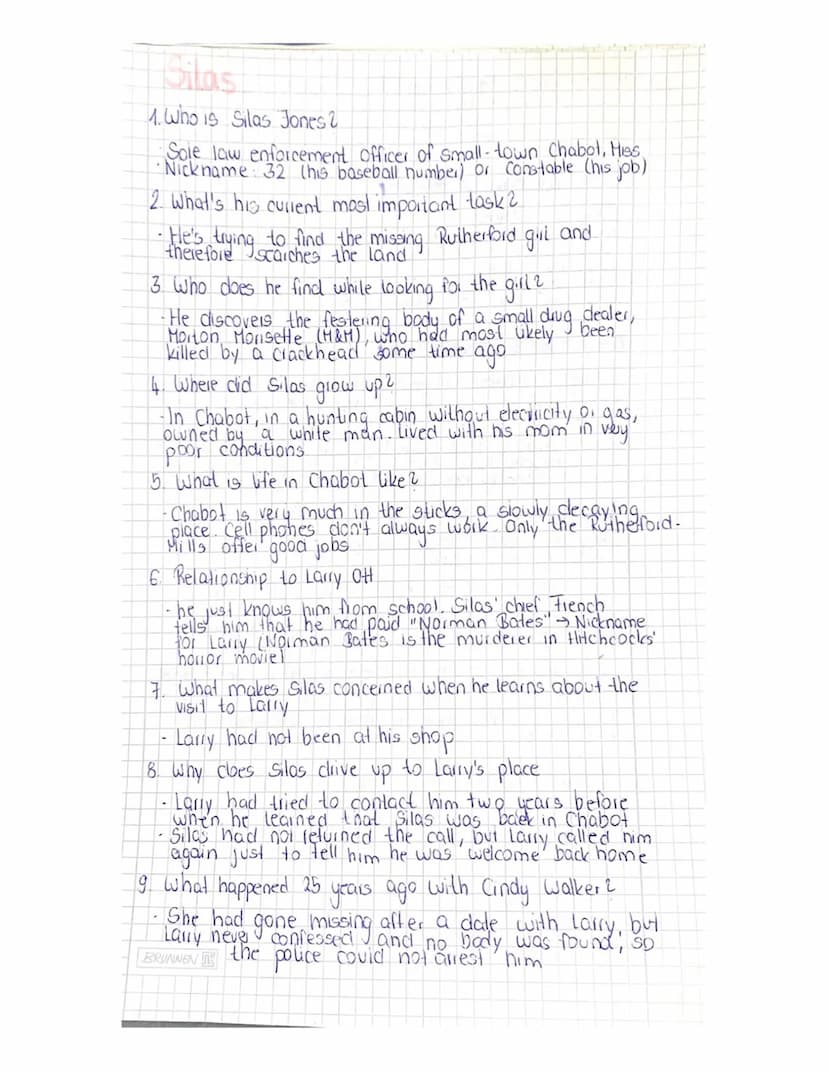 Silas
1. Who is Silas Jones?
· Sole law enforcement officer of small-town Chabot, Miss
· Nickname: 32 (his baseball number) or Constable (his job)
2. What's his current most important task?
· He's trying to find the missing Rutherford girl and
therefore searches the land
3. Who does he find while looking for the girl?
· He discovers the festering body of a small drug dealer,
Morton Morisette (M&M), who had most likely been
killed by a crackhead some time ago
4. Where did Silas grow up?
- In Chabot, in a hunting cabin without electricity or gas,
owned by a white man. Lived with his mom in very
poor conditions
5. What is life in Chabot like?
- Chabot is very much in the sticks, a slowly decaying
place. Cell phones don't always work. Only the Rutherford-
Mills offer good jobs
6. Relationship to Larry Ott
- he just knows him from school. Silas' chief, French
tells him that he had paid "Norman Bates" → Nickname
for Larry (Norman Bates is the murderer in Hitchcocks'
horror movie)
7. What makes Silas concerned when he learns about the
visit to Larry
- Larry had not been at his shop
8. Why does Silas drive up to Larry's place
· Larry had tried to contact him two years before
when he learned that Silas was back in Chabot
· Silas had not returned the call, but Larry called him
again just to tell him he was welcome back home
9. What happened 25 years ago with Cindy Walker?
· She had gone missing after a date with Larry, but
Larry never confessed and no body was found, so
the police could not arrest him
BRUNNEN